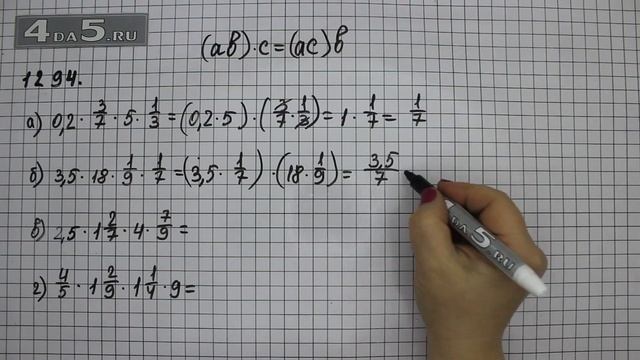 4DA5.RU
(ab)·c=(ac)b
1294.
а) 0,2 · 3/7 · 5 · 1/3 = (0,2·5)·(3/7·1/3) = 1 · 1/7 = 1/7
б) 3,5 · 18 · 1/9 · 1/7 = (3,5 · 1/7) · (18 · 1/9) = 3,5/7
в) 2,5 · 1 2/7 · 4 · 7/9 =
г) 4/5 · 1 2/9 · 1 1/4 · 9 =
4DA5.RU